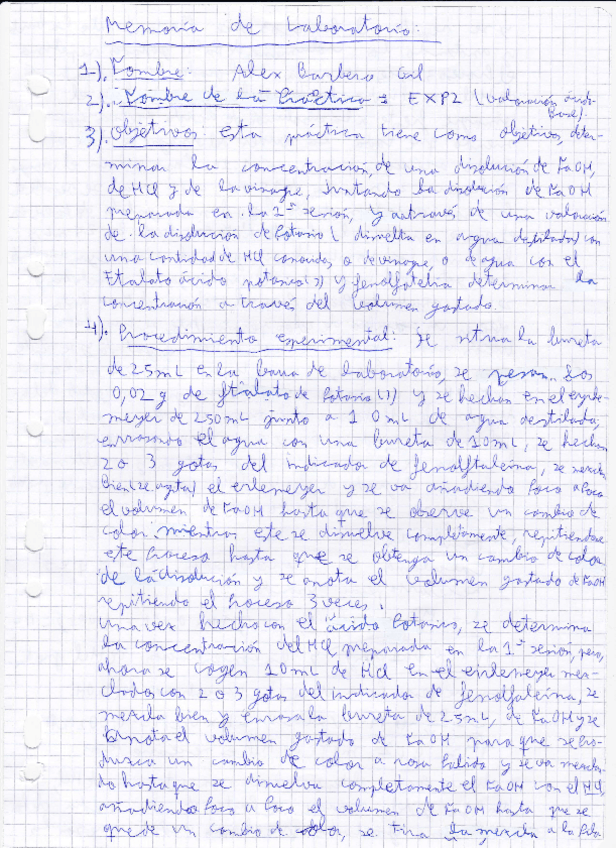 Memoria de Laboratorio:
1-). Nombre: Alex Barbero Gil
2). Nombre de la Práctica: EXP2 (valoración ácido
Base).
3). Objetivos: esta práctica tiene como objetivo, deter-
minar la concentración, de una disolución de NaOH,
de HCl y de la vinagre, juntando la disolución de NaOH
preparada en la 1ª sesión, y a través de una valoración
de la disolución de Potasio (disuelta en agua destilada) con
una cantidad de HCl conocida, o de vinagre, o de agua con el
Ftalato ácido potasio(I) y fenolftaleína determinar la
concentración a través del volumen gastado.
4). Procedimiento experimental: Se situa la bureta
de 25mL en la barra de laboratorio, se pesan los
0,02 g de ftalato de Potasio (I) y se hechan en el erlen-
meyer de 250 mL junto a 10 mL de agua destilada,
enrasando el agua con una bureta de 10mL, se hechan
2 o 3 gotas del indicador de fenolftaleína, se mezcla
bien (se agita) el erlenmeyer y se va añadiendo poco a poco
el volumen de NaOH hasta que se observe un cambio de
color mientras este se disuelve completamente, repitiendose
este proceso hasta que se obtenga un cambio de color
de la disolución y se anota el volumen gastado de NaOH
repitiendo el proceso 3 veces.
Una vez hecho con el ácido Potasico, se determina
la concentración del HCl preparada en la 1ª sesión, pero,
ahora se cogen 10mL de HCl en el erlenmeyer mez-
clados con 2 o 3 gotas del indicador de fenolftaleína, se
mezcla bien y enrasa la bureta de 25mL, de NaOH y se
anota el volumen gastado de NaOH para que se pro-
duzca un cambio de color a rosa palido y se va mezclan-
do hasta que se disuelva completamente el NaOH con el HCl,
añadiendo poco a poco el volumen de NaOH hasta que se
quede un cambio de color, se tira la mezcla a la pila